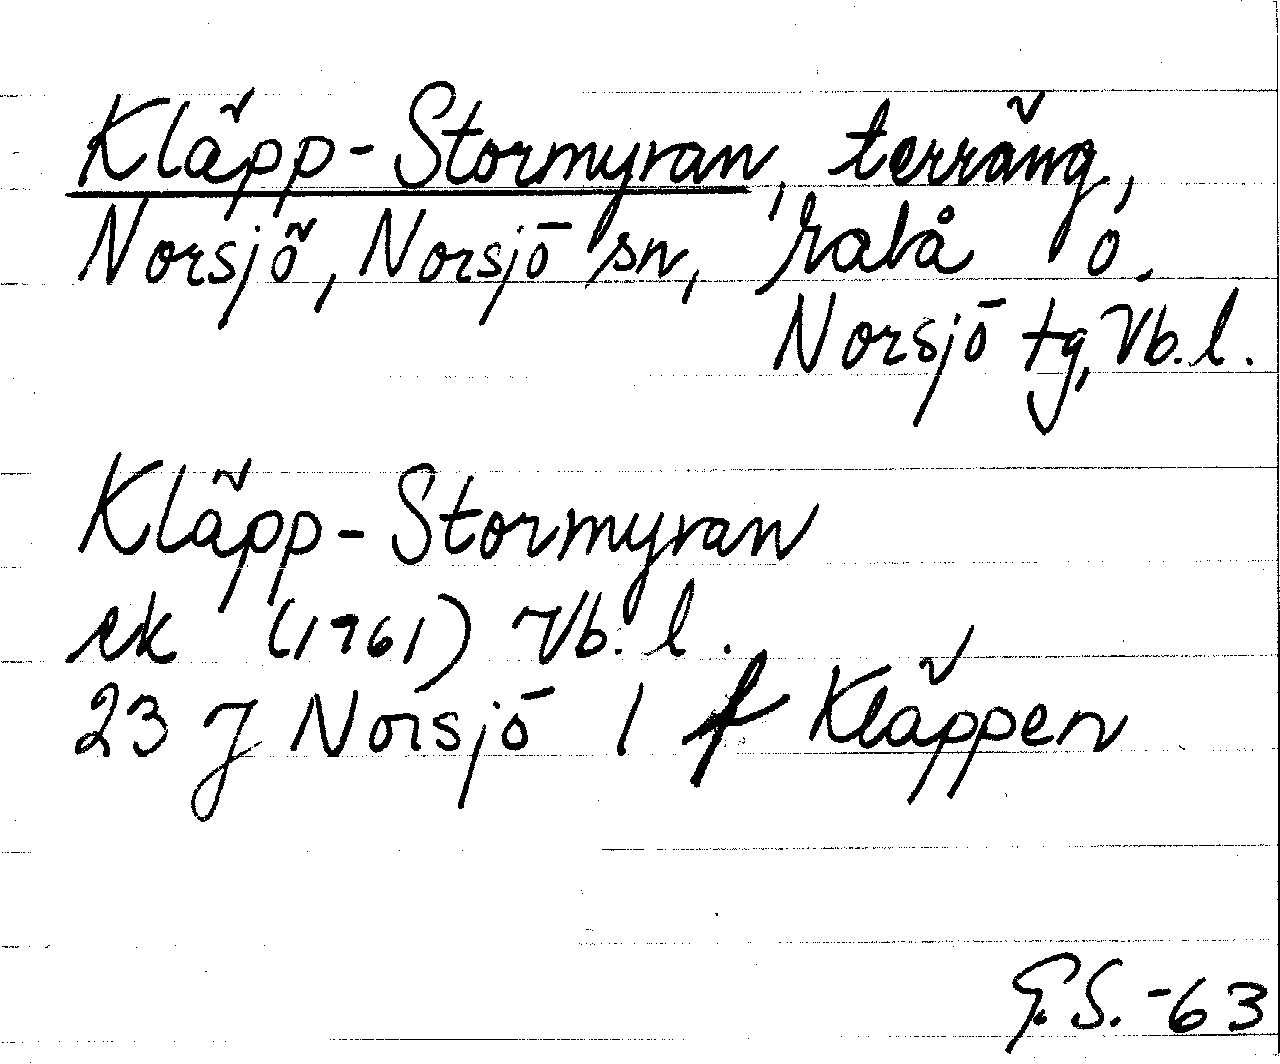 Kläpp-Stormyran, terräng,
Norsjö, Norsjö sn, Malå o.
Norsjö tg, Vb. l.
Kläpp-Stormyran
ek (1961) Vb. l.
23 J Norsjö 1 f Kläppen
G.S. -63